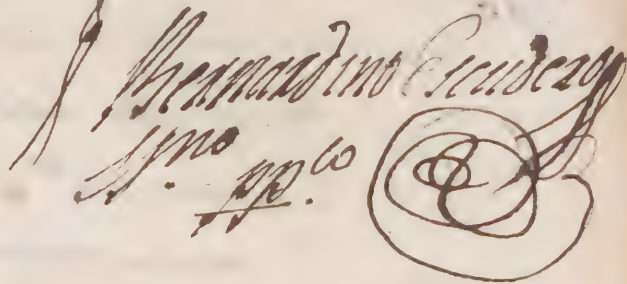 Bernardino Escudero
ss.no pp.co